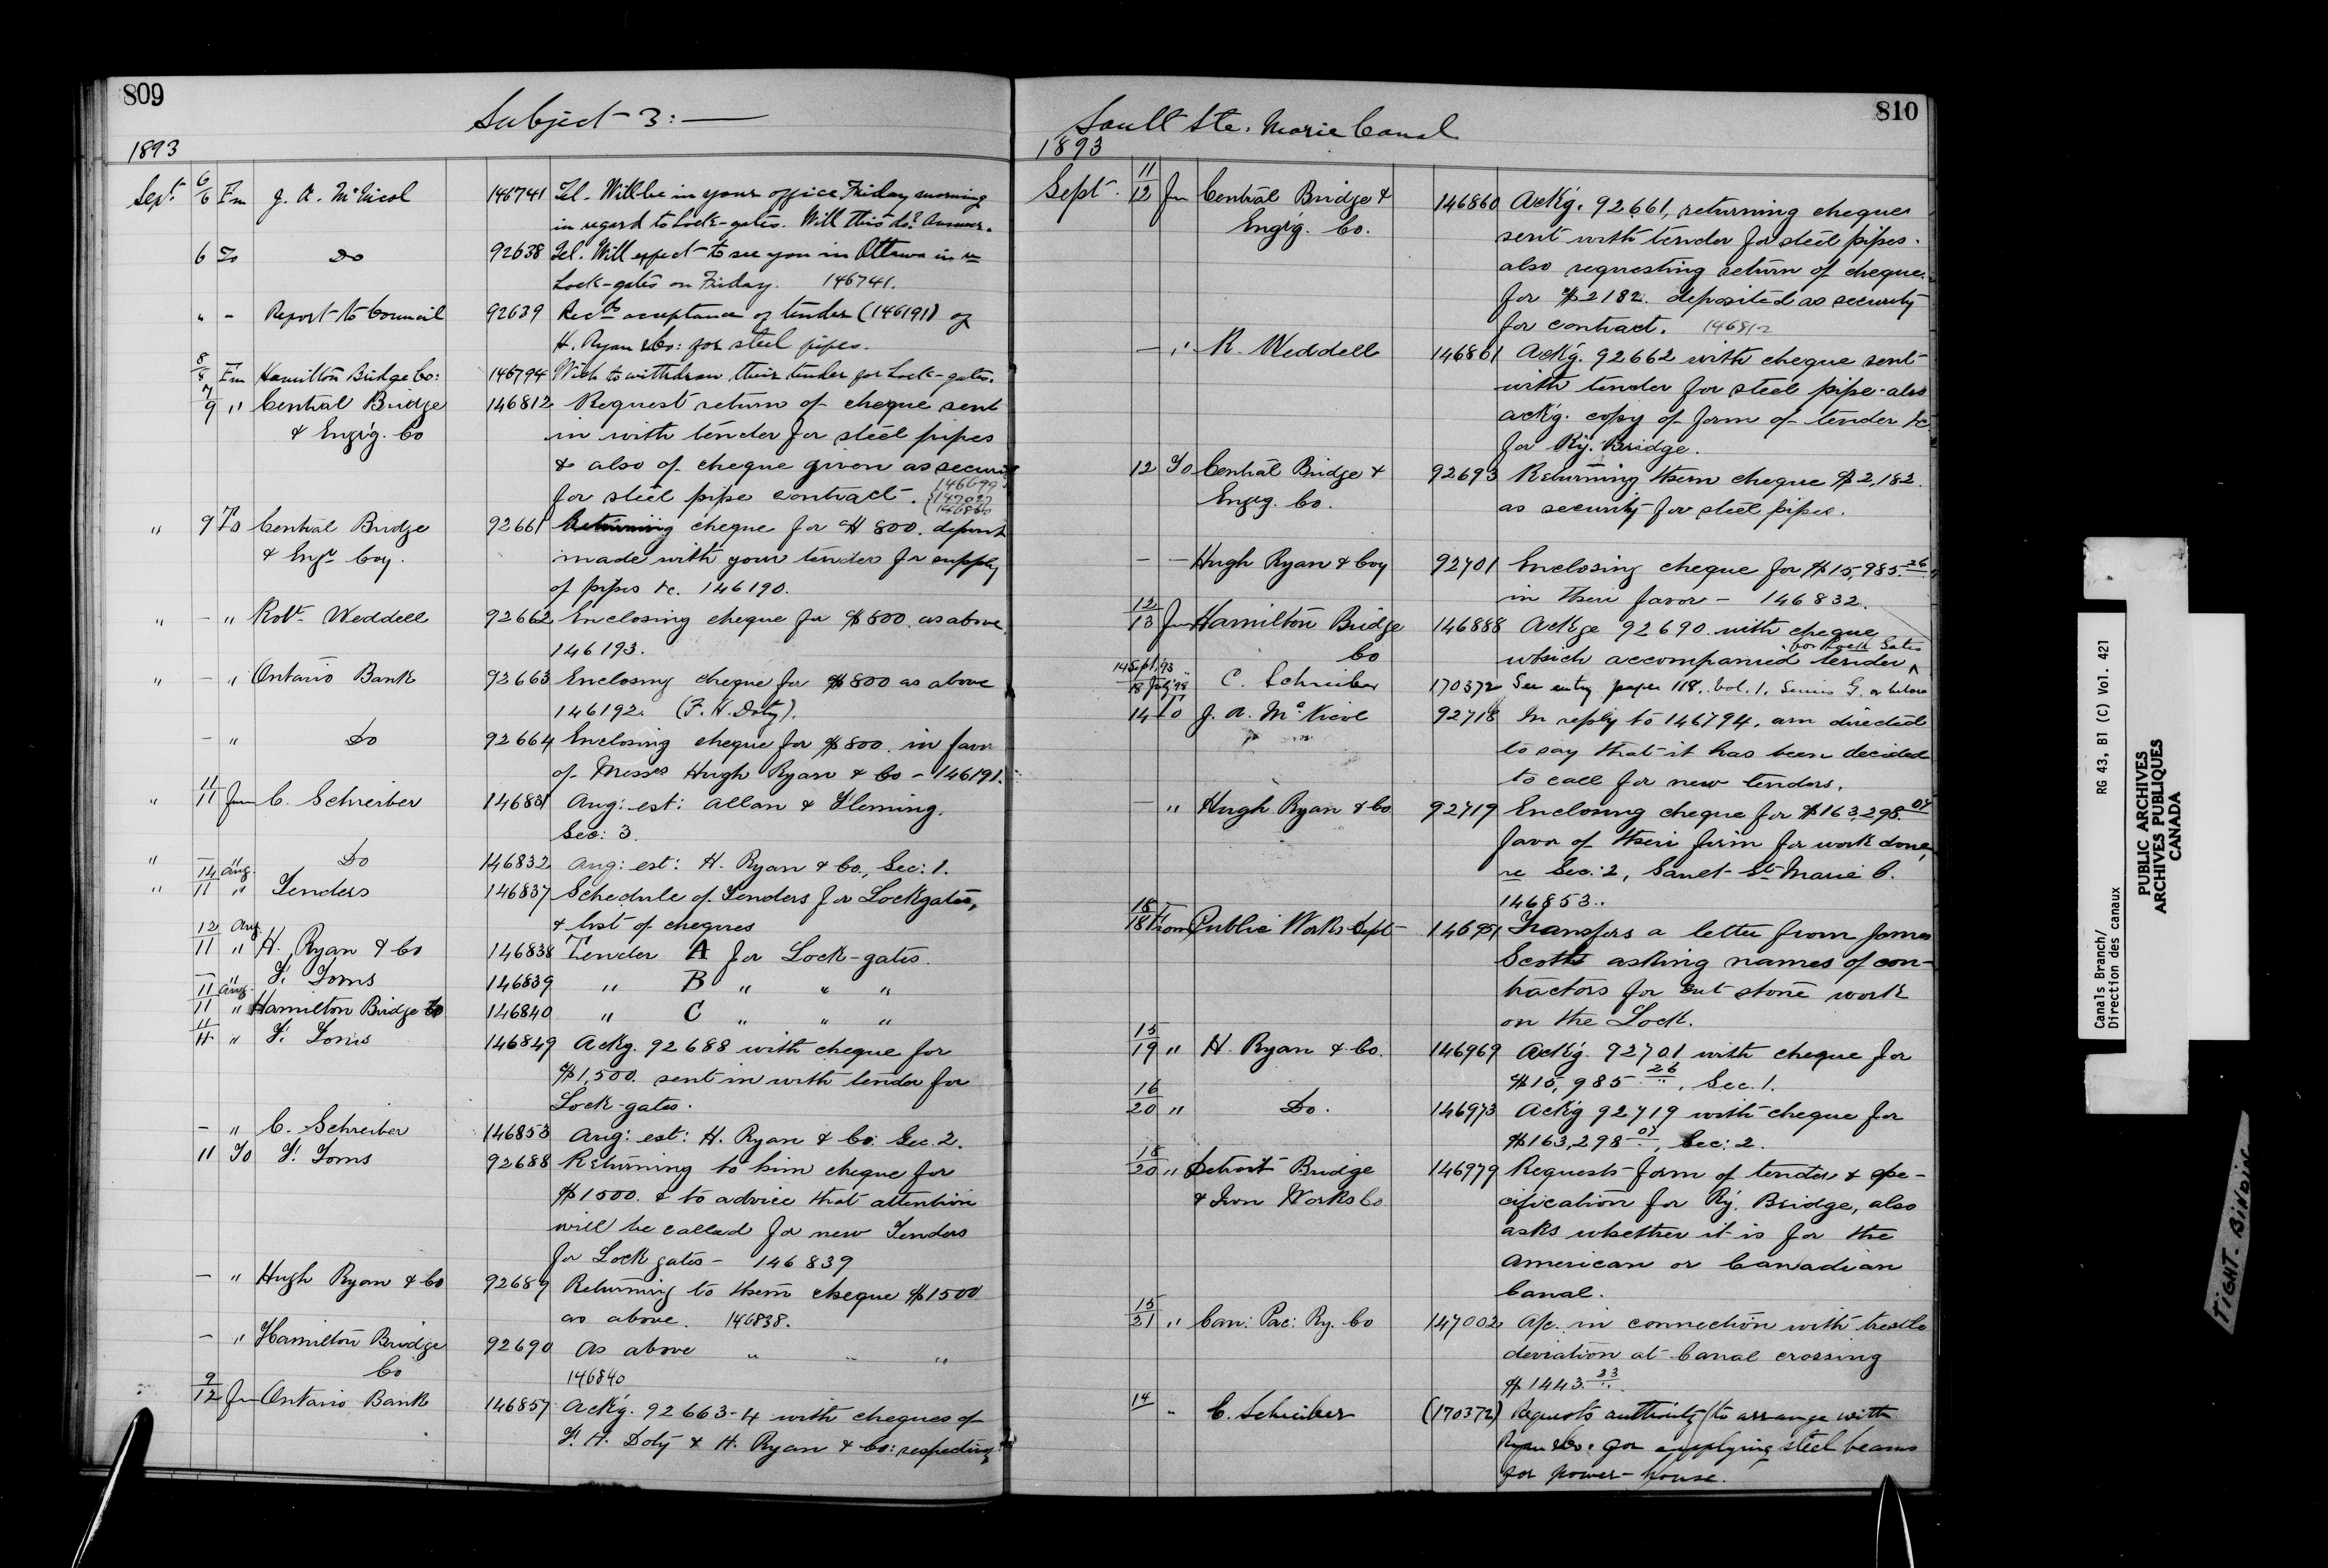 809
Subject 3:—
1893
Sept. 6/6 Fm J. A. McNicol 146741 Tel. Will be in your office Friday morning
in regard to Lock-gates. Will this do? Answer.
6 To Do 92638 Tel. Will expect to see you in Ottawa in re
Lock-gates on Friday. 146741.
" - Report to Council 92639 Recds acceptance of tender (146191) of
H. Ryan & Co: for steel pipes.
8/8 Fm Hamilton Bridge Co: 146794 Wish to withdraw their tender for Lock-gates.
7/9 " Central Bridge 146812 Request return of cheque sent
& Eng'g. Co in with tender for steel pipes
& also of cheque given as security
for steel pipe contract. 146699
147027
146860
" 9 To Central Bridge 92661 Returning cheque for $800. deposit
& Engr Coy. made with your tender for supply
of pipes &c. 146190.
" - " Robt Weddell 92662 Enclosing cheque for $800. as above
146193.
" - " Ontario Bank 92663 Enclosing cheque for $800 as above
146192. (F. H. Doty).
- " Do 92664 Enclosing cheque for $800. in favor
of Messrs Hugh Ryan & Co - 146191.
" 11/11 from C. Schreiber 146831 Aug: est: Allan & Fleming.
Sec: 3.
" - " Do 146832 Aug: est: H. Ryan & Co., Sec: 1.
" 14 Aug./11 " Tenders 146837 Schedule of Tenders for Lockgates,
& list of cheques
12 Aug./11 " H. Ryan & Co 146838 Tender A for Lock-gates.
- " F. Toms 146839 " B " " "
11 Aug./11 " Hamilton Bridge Co 146840 " C " " "
11/11 " F. Toms 146849 Ackg. 92688 with cheque for
$1,500. sent in with tender for
Lock-gates.
- " C. Schreiber 146853 Aug: est: H. Ryan & Co: Sec. 2.
11 To F. Toms 92688 Returning to him cheque for
$1500. & to advice that attention
will be called for new Tenders
for Lock gates - 146839
- " Hugh Ryan & Co 92689 Returning to them cheque $1500
as above. 146838.
- " Hamilton Bridge 92690 As above " " "
Co 146840
9/12 fm Ontario Bank 146857 Ack'g. 92663-4 with cheques of
F. H. Doty & H. Ryan & Co: respecting
810
Sault Ste. Marie Canal
1893
Sept. 11/12 fm Central Bridge & 146860 Ack'g. 92661, returning cheque
Eng'g. Co. sent with tender for steel pipes.
also requesting return of cheque
for $2182. deposited as security
for contract. 146812
— " R. Weddell 146861 Ack'g. 92662 with cheque sent
with tender for steel pipe - also
ack'g. copy of form of tender &c
for Ry. Bridge.
12 To Central Bridge & 92693 Returning them cheque $2,182.
Engrg. Co. as security for steel pipes.
— — Hugh Ryan & Coy 92701 Enclosing cheque for $15,985.26
in their favor - 146832.
12/13 fm Hamilton Bridge 146888 Ackge 92690 with cheque
Co which accompanied tender ^ for Lock Gates
14 Sept. '93/18 July '98 " C. Schreiber 170372 See entry page 118. Vol. 1, Series G. or below
14 To J. A. McNicol 92718 In reply to 146794, am directed
to say that it has been decided
to call for new tenders.
— " Hugh Ryan & Co 92719 Enclosing cheque for $163,298.07
favor of their firm for work done,
re Sec: 2, Sault St Marie C.
146853..
16/18 From Public Works Dept 146951 Transfers a letter from James
Scott asking names of con-
tractors for cut stone work
on the Lock.
15/19 " H. Ryan & Co. 146969 Ack'g. 92701 with cheque for
$15,985.26, Sec. 1.
16/20 " Do. 146973 Ack'g 92719 with cheque for
$163,298.07, Sec: 2.
18/20 " Detroit Bridge 146979 Requests form of tender & spe-
& Iron Works Co cification for Ry. Bridge, also
asks whether it is for the
American or Canadian
Canal.
15/21 " Can: Pac: Ry. Co 147002 A/c. in connection with trestle
deviation at Canal crossing
$1443.23
14 " C. Schreiber (170372) Requests authority to arrange with
Ryan & Co: for supplying steel beams
for power-house.
Canals Branch/ RG 43, B1 (C) Vol. 421
Direction des canaux
PUBLIC ARCHIVES
ARCHIVES PUBLIQUES
CANADA
TIGHT BINDING